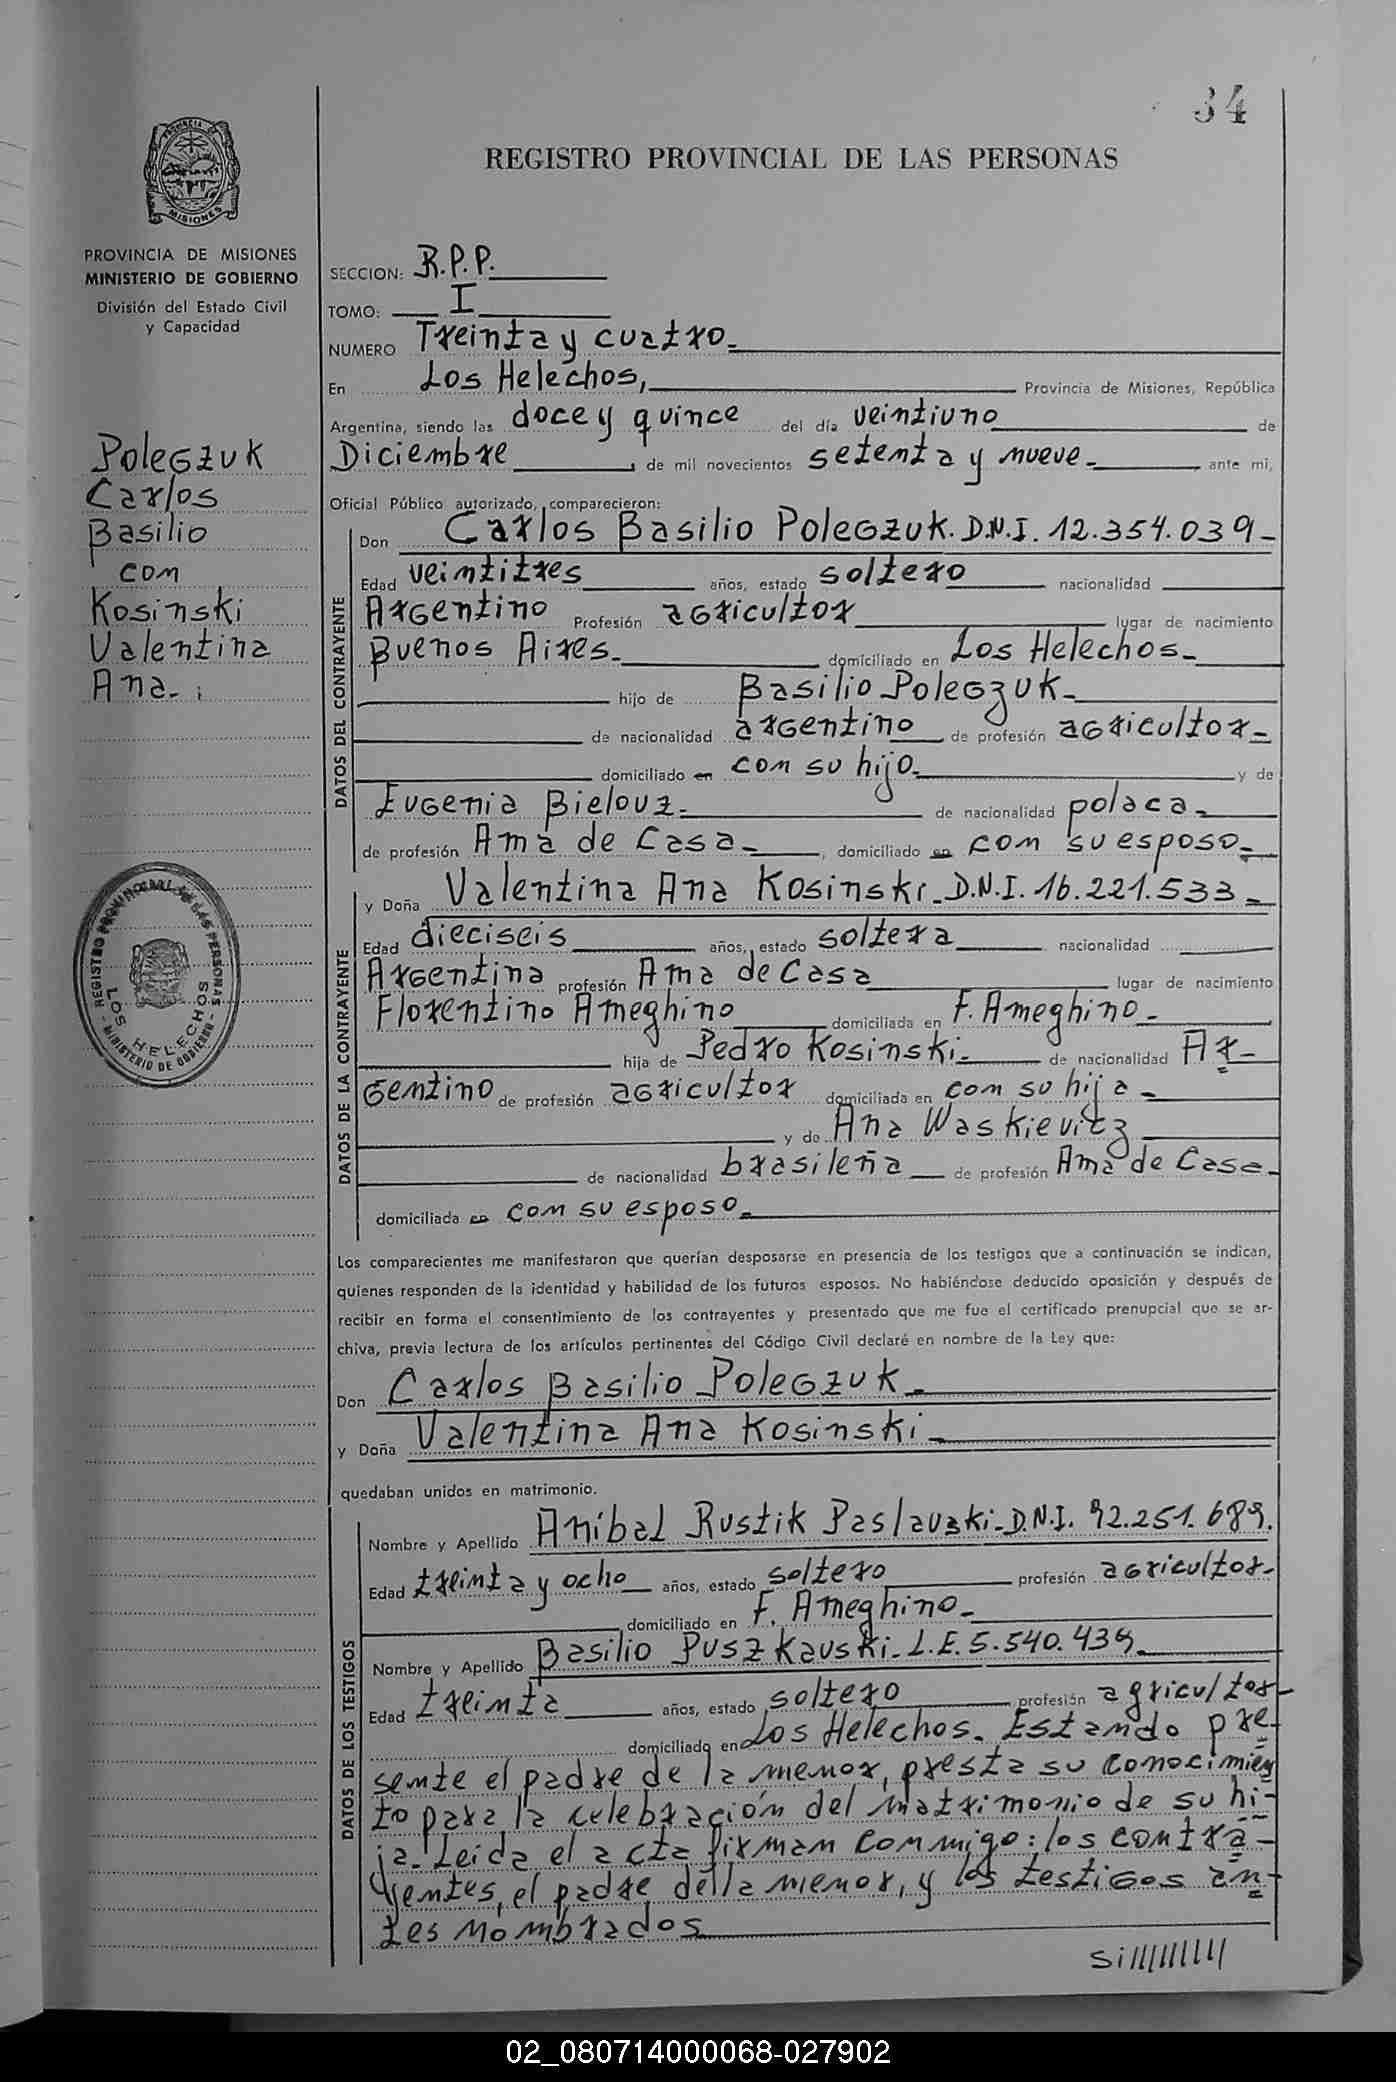 34
REGISTRO PROVINCIAL DE LAS PERSONAS
PROVINCIA DE
MISIONES
PROVINCIA DE MISIONES
MINISTERIO DE GOBIERNO
División del Estado Civil
y Capacidad
Polegzuk
Carlos
Basilio
con
Kosinski
Valentina
Ana.
REGISTRO PROVINCIAL DE LAS PERSONAS
LOS HELECHOS
- MINISTERIO DE GOBIERNO -
SECCION: R.P.P.
TOMO: I
NUMERO Treinta y cuatro.
En Los Helechos, Provincia de Misiones, República
Argentina, siendo las doce y quince del día veintiuno de
Diciembre, de mil novecientos setenta y nueve. ante mi,
Oficial Público autorizado, comparecieron:
DATOS DEL CONTRAYENTE
Don Carlos Basilio Polegzuk. D.N.I. 12.354.039-
Edad veintitres años, estado soltero nacionalidad
Argentino Profesión agricultor lugar de nacimiento
Buenos Aires. domiciliado en Los Helechos.
hijo de Basilio Polegzuk.
de nacionalidad argentino de profesión agricultor-
domiciliado en con su hijo. y de
Eugenia Bielouz. de nacionalidad polaca.
de profesión Ama de Casa. , domiciliado en con su esposo.
DATOS DE LA CONTRAYENTE
y Doña Valentina Ana Kosinski. D.N.I. 16.221.533-
Edad dieciseis años, estado soltera nacionalidad
Argentina profesión Ama de Casa lugar de nacimiento
Florentino Ameghino domiciliada en F. Ameghino-
hija de Pedro Kosinski. de nacionalidad Ar-
gentino de profesión agricultor domiciliada en con su hija-
y de Ana Waskievitz
de nacionalidad brasileña de profesión Ama de Casa.
domiciliada en con su esposo.
Los comparecientes me manifestaron que querían desposarse en presencia de los testigos que a continuación se indican,
quienes responden de la identidad y habilidad de los futuros esposos. No habiéndose deducido oposición y después de
recibir en forma el consentimiento de los contrayentes y presentado que me fue el certificado prenupcial que se ar-
chiva, previa lectura de los artículos pertinentes del Código Civil declaré en nombre de la Ley que:
Don Carlos Basilio Polegzuk.
y Doña Valentina Ana Kosinski.
quedaban unidos en matrimonio.
DATOS DE LOS TESTIGOS
Nombre y Apellido Aníbal Rustik Paslauski. D.N.I. 92.251.689.
Edad treinta y ocho años, estado soltero profesión agricultor-
domiciliado en F. Ameghino-
Nombre y Apellido Basilio Puszkauski. L.E. 5.540.439.
Edad treinta años, estado soltero profesión agricultor-
domiciliado en Los Helechos. Estando pre-
sente el padre de la menor, presta su conocimien
to para la celebración del matrimonio de su hi-
ja. Leida el acta firman conmigo: los contra-
yentes, el padre de la menor, y los testigos an-
tes nombrados
Si//////////
02_080714000068-027902